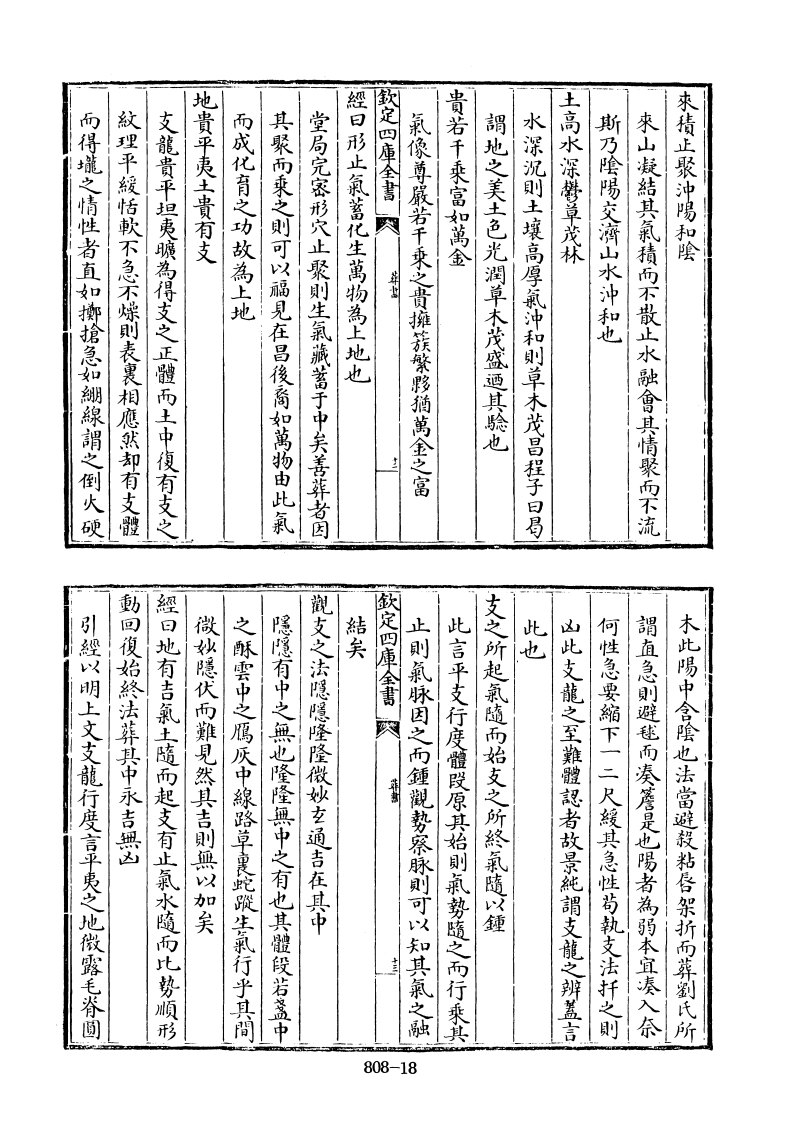 來積止聚沖陽和陰
來山凝結其氣積而不散止水融會其情聚而不流
斯乃陰陽交濟山水沖和也
土高水深鬱草茂林
水深沉則土壤高厚氣沖和則草木茂昌程子曰曷
謂地之美土色光潤草木茂盛廼其驗也
貴若千乘富如萬金
氣像尊嚴若千乘之貴擁簇繁夥猶萬金之富
欽定四庫全書
葬書
十二
經曰形止氣蓄化生萬物為上地也
堂局完密形穴止聚則生氣藏蓄于中矣善葬者因
其聚而乘之則可以福見在昌後裔如萬物由此氣
而成化育之功故為上地
地貴平夷土貴有支
支龍貴平坦夷曠為得支之正體而土中復有支之
紋理平緩恬軟不急不燥則表裏相應然却有支體
而得壠之情性者直如擲搶急如繃線謂之倒火硬
木此陽中含陰也法當避殺粘唇架折而葬劉氏所
謂直急則避毬而湊簷是也陽者為弱本宜湊入奈
何性急要縮下一二尺緩其急性苟執支法扦之則
凶此支龍之至難體認者故景純謂支龍之辨蓋言
此也
支之所起氣隨而始支之所終氣隨以鍾
此言平支行度體段原其始則氣勢隨之而行乘其
止則氣脉因之而鍾觀勢察脉則可以知其氣之融
欽定四庫全書
葬書
十三
結矣
觀支之法隱隱隆隆微妙玄通吉在其中
隱隱有中之無也隆隆無中之有也其體段若盞中
之酥雲中之鴈灰中線路草裏蛇蹤生氣行乎其間
微妙隱伏而難見然其吉則無以加矣
經曰地有吉氣土隨而起支有止氣水隨而比勢順形
動回復始終法葬其中永吉無凶
引經以明上文支龍行度言平夷之地微露毛脊圓
808-18